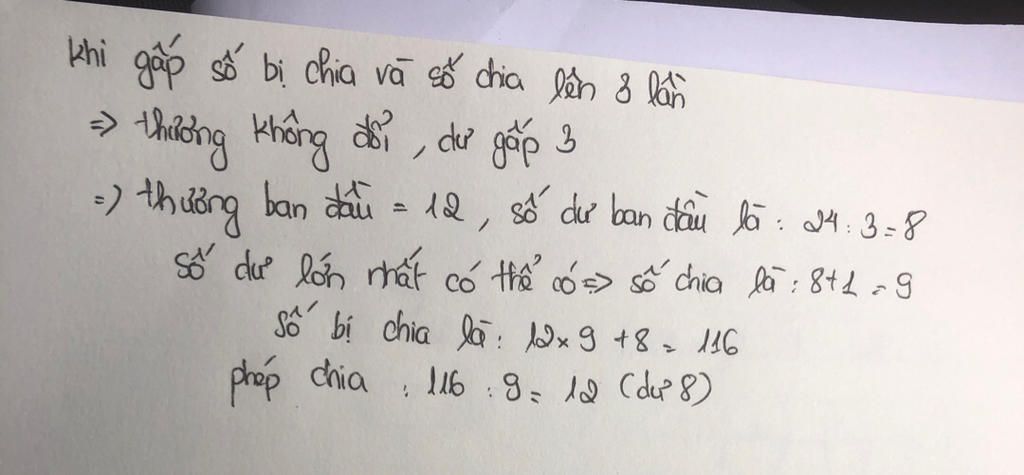 khi gấp số bị chia và số chia lên 3 lần
=> thương không đổi, dư gấp 3
=> thương ban đầu = 12, số dư ban đầu là: 24:3=8
số dư lớn nhất có thể có => số chia là: 8+1=9
số bị chia là: 12x9+8=116
phép chia: 116:9=12 (dư 8)